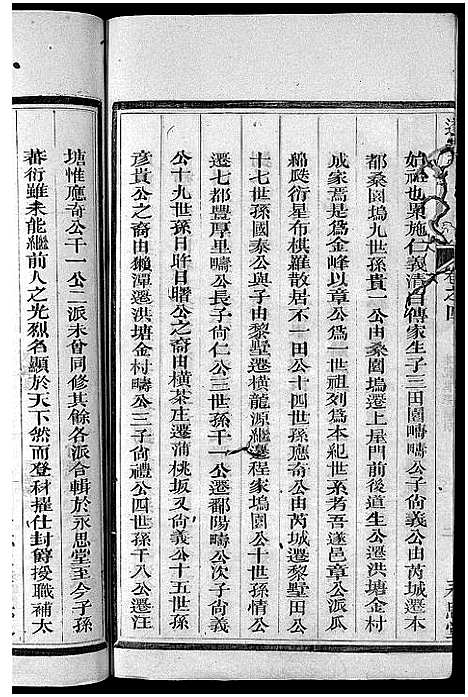 始祖也累施仁義清白傳家生子三田園疇疇公子尙義公由芮城遷本
都桑園塢九世孫貴一公由桑園塢遷上屋門前後道生公遷洪塘金村
成家焉是爲金峰以章公爲一世祖列爲本紀世系若吾遂邑章公派瓜
綿瓞衍星布棋羅散居不一田公十四世孫應奇公由芮城遷黎墅田公
十七世孫國泰公與子由黎墅遷橫龍源繼遷程家塢園公十世孫情公
遷七都豐厚里疇公長子尙仁公三世孫千一公遷鄱陽疇公次子尙義
公十九世孫日昨日瞻公之裔由橫茶庄遷蒲桃坂又尙義公十五世孫
彥貴公之裔由獺潭遷洪塘金村疇公三子尙禮公四世孫千八公遷汪
塘惟應奇公千一公二派未曾同修其餘各派合輯於永思堂至今子孫
蕃衍雖未能繼前人之光烈名顯於天下然而登材擢仕封爵授職補太
卷之四